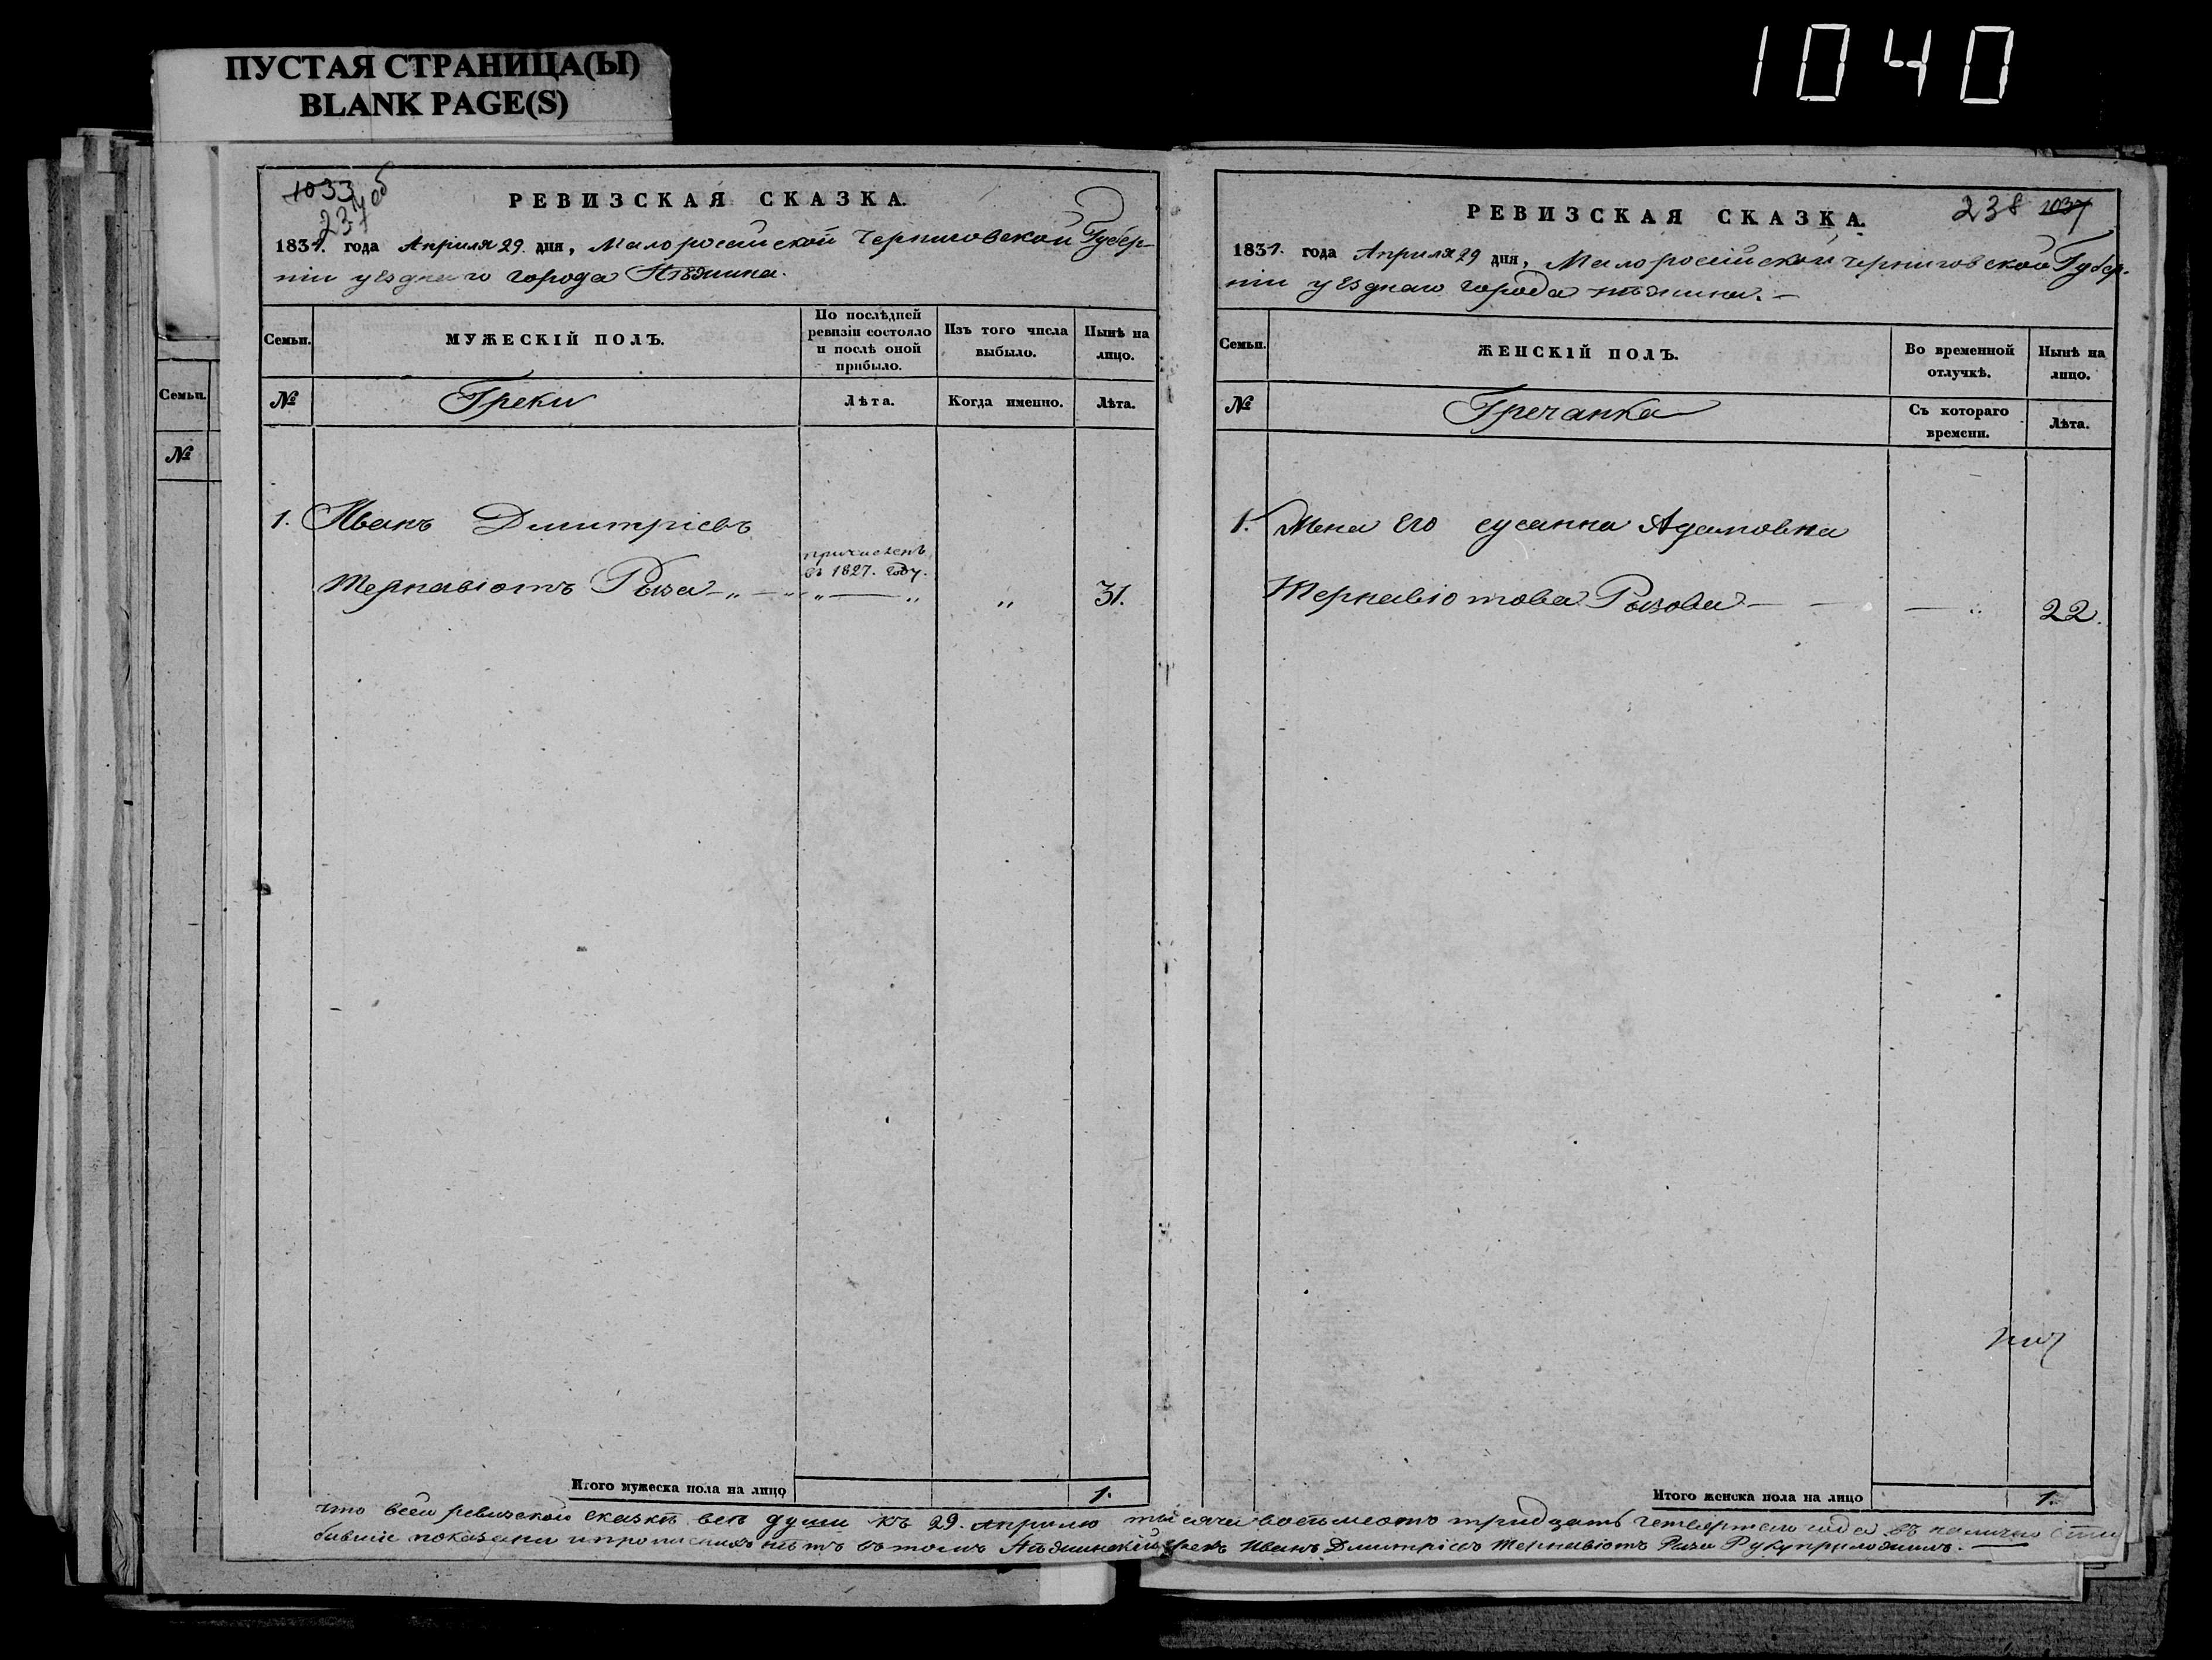 1040
ПУСТАЯ СТРАНИЦА(Ы)
BLANK PAGE(S)
Семьи.
№
1033
237 об
РЕВИЗСКАЯ СКАЗКА.
1834. года Апреля 29 дня, Малоросийской Черниговской Губер-
ніи уезднаго города Нѣжина.
Семьи.
МУЖЕСКІЙ ПОЛЪ.
По послѣдней ревизіи состояло и послѣ оной прибыло.
Изъ того числа выбыло.
Нынѣ на лицо.
№
Греки
Лѣта.
Когда именно.
Лѣта.
1. Иванъ Дмитріевъ
причисленъ
въ 1827. году.
Тернавіотъ Рыза — „ — „ „ — „ „ 31.
Итого мужеска пола на лицо 1.
238 1034
РЕВИЗСКАЯ СКАЗКА.
1834. года Апреля 29 дня, Малоросийской Черниговской Губер-
ніи уезднаго города Нѣжина. —
Семьи.
ЖЕНСКІЙ ПОЛЪ.
Во временной отлучкѣ.
Нынѣ на лицо.
№
Гречанка
Съ котораго времени.
Лѣта.
1. Жена его Сусанна Адамовна
Тернавіотова Рызова — — — „ 22.
Итого женска пола на лицо 1.
что всей ревизской сказкѣ всѣ души къ 29. апрелю тысяча восемьсотъ тридцать четвертаго года въ налично сти
бывшіе показани и прописныхъ нѣтъ въ томъ Нѣжинскій грекъ Иванъ Дмитріевъ Тернавіотъ Риза Руку приложилъ. —